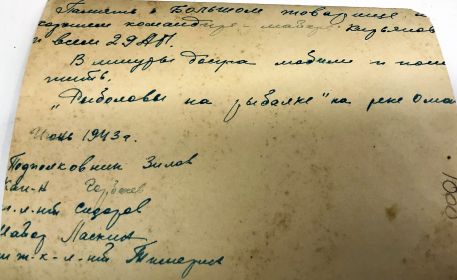 Память о Большом товарище и
хорошем командире - майоре Кирьянов
и всем 29АП.
В минуты досуга любили и пош
тить.
"Рыболовы на рыбалке" на реке Ома
Июнь 1943г.
Подполковник Зилов
Кап-н
л-нт Сидоров
Майор Ласкин
л-нт
1000